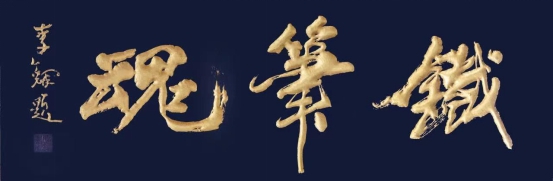 鐵筆魂
李鐸題